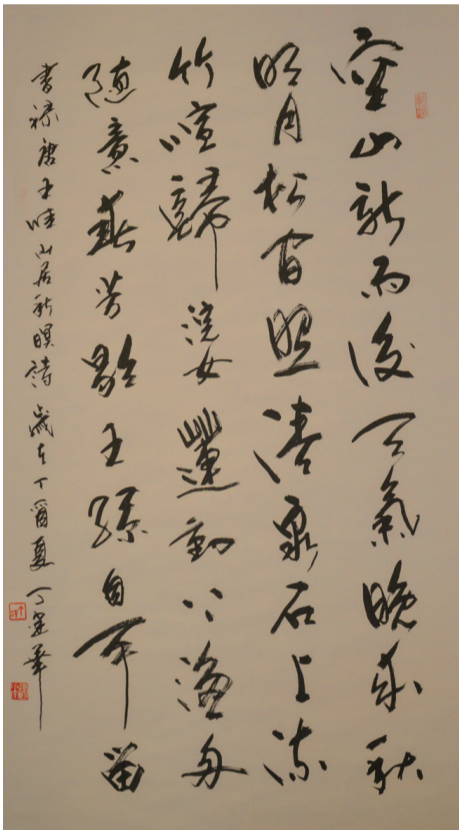 空山新雨後天氣晚來秋
明月松間照清泉石上流
竹喧歸浣女蓮動下漁舟
隨意春芳歇王孫自可留
書錄唐王維山居秋暝詩歲在丁酉夏丁